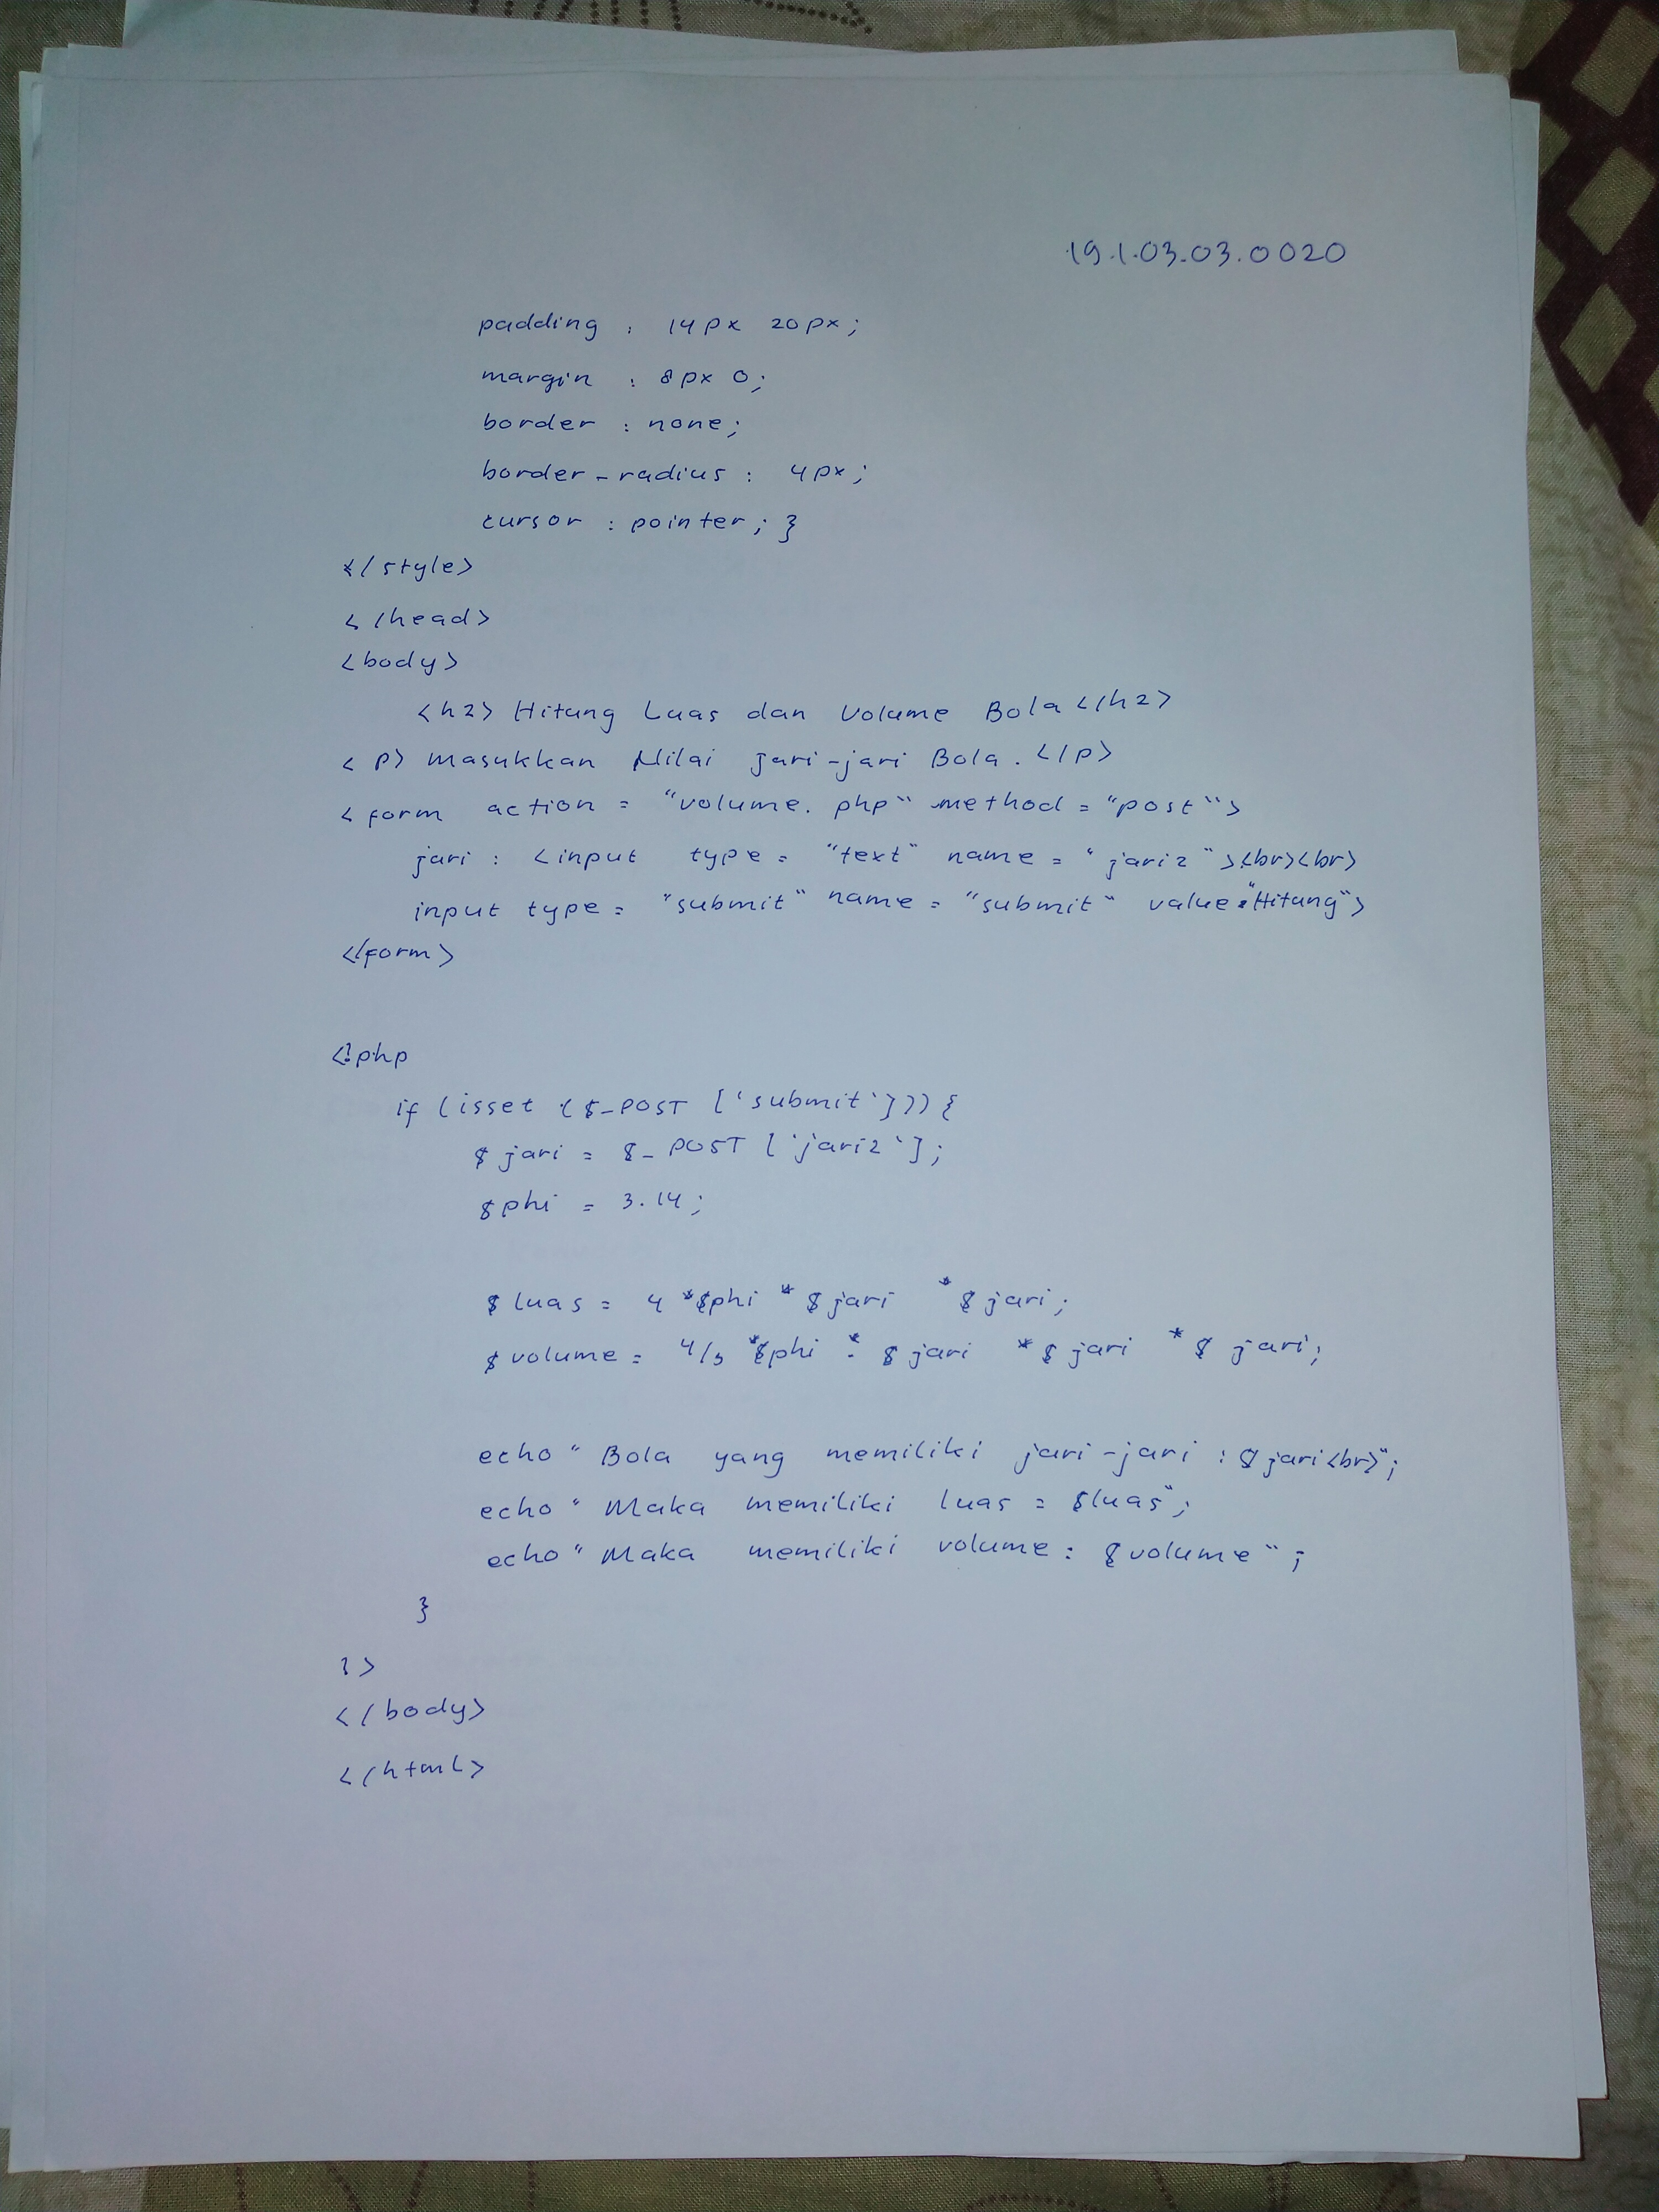 19.1.03.03.0020
padding : 14px 20px;
margin : 8px 0;
border : none;
border-radius : 4px;
cursor : pointer; }
</style>
</head>
<body>
<h2> Hitung Luas dan Volume Bola </h2>
<p> Masukkan Nilai jari-jari Bola. </p>
<form action = "volume.php" method = "post">
jari : <input type = "text" name = "jari2"><br><br>
input type = "submit" name = "submit" value = "Hitung">
</form>
<?php
if (isset ($_POST ['submit'])) {
$jari = $_POST ['jari2'];
$phi = 3.14;
$luas = 4 * $phi * $jari * $jari;
$volume = 4/3 * $phi * $jari * $jari * $jari;
echo "Bola yang memiliki jari-jari : $jari<br>";
echo "Maka memiliki luas = $luas";
echo "Maka memiliki volume : $volume";
}
?>
</body>
</html>